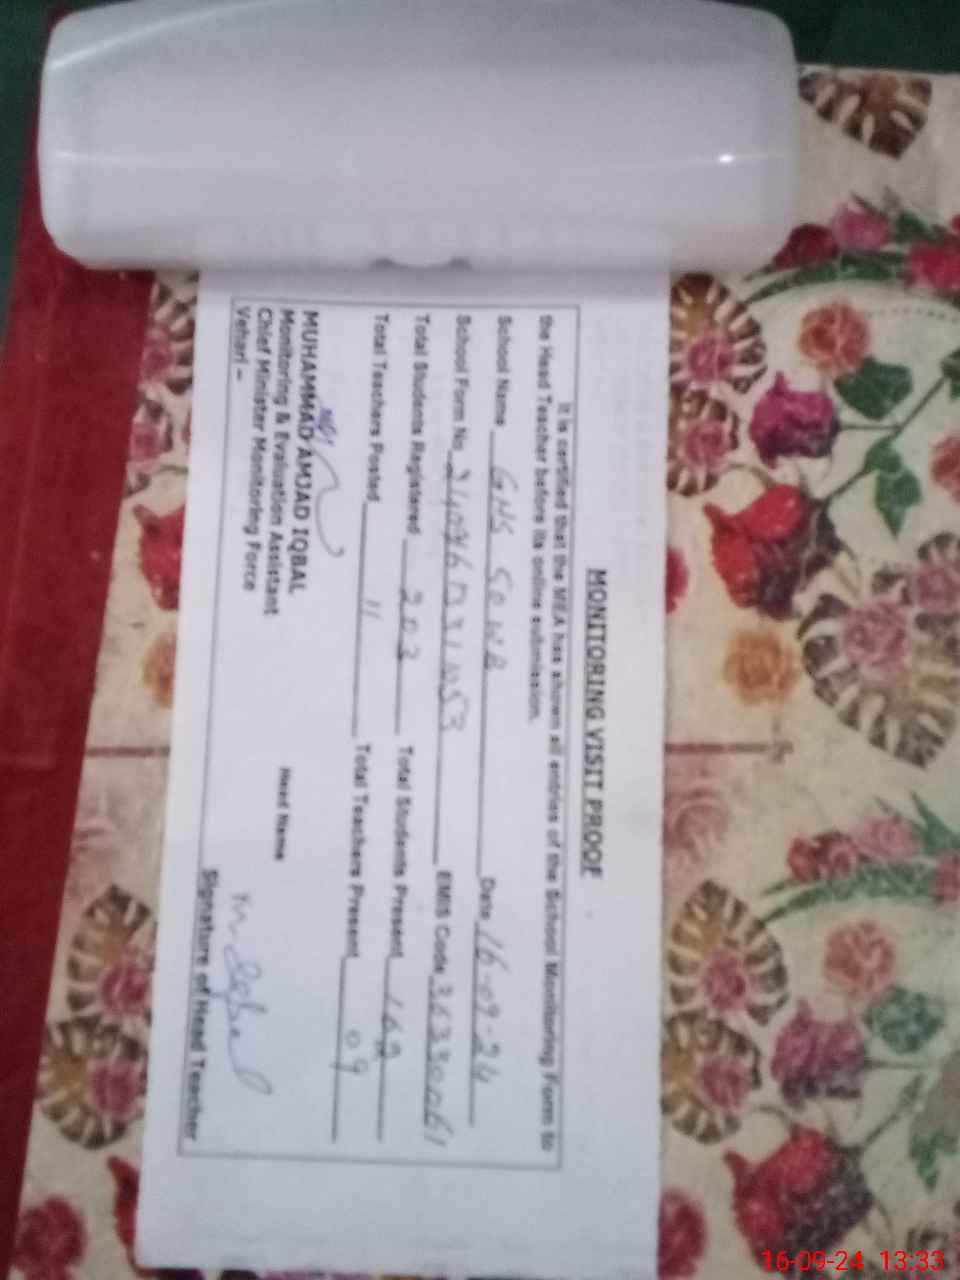 MONITORING VISIT PROOF
It is certified that the MEA has shown all entries of the School Monitoring Form to
the Head Teacher before its online submission.
School Name GHS 50 WB Date 16-09-24
School Form No. EMIS Code 36330061
Total Students Registered 203 Total Students Present
Total Teachers Posted 11 Total Teachers Present 09
MUHAMMAD AMJAD IQBAL
Monitoring & Evaluation Assistant Head Name
Chief Minister Monitoring Force
Vehari –
Signature of Head Teacher
16-09-24 13:33